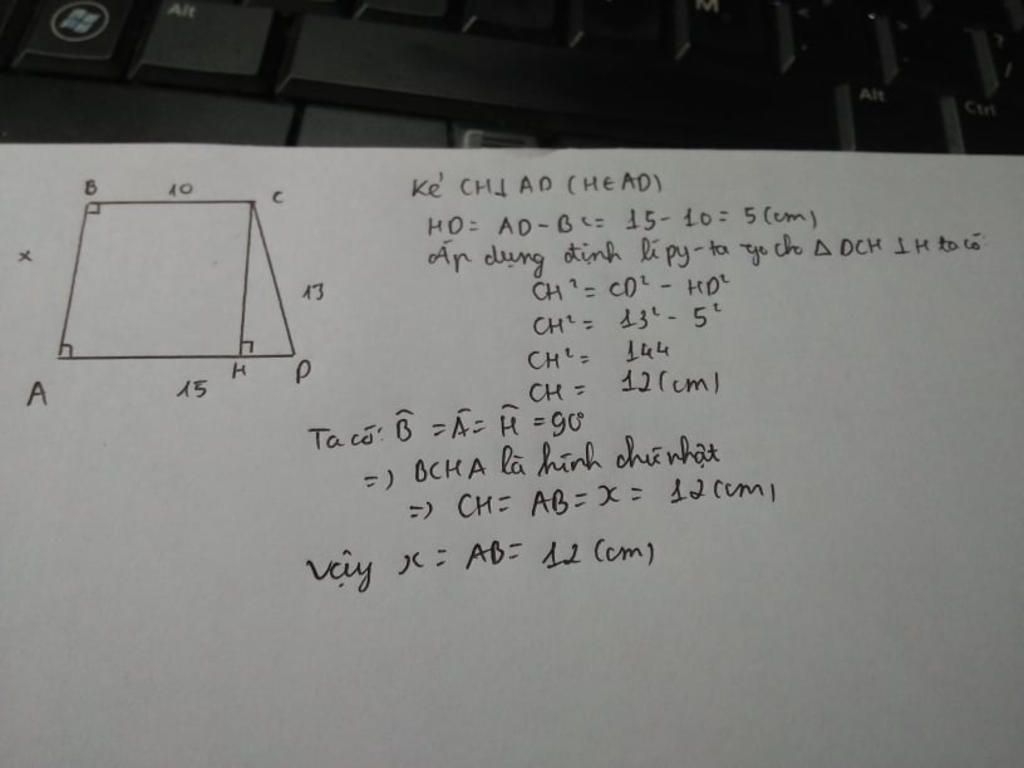 Alt
M
Alt
Ctrl
B 10 C
x
13
A 15 H D
Kẻ CH⊥AD (H∈AD)
HD = AD - BC = 15 - 10 = 5 (cm)
Áp dụng định lí py-ta go cho Δ DCH ⊥ H ta có
CH² = CD² - HD²
CH² = 13² - 5²
CH² = 144
CH = 12 (cm)
Ta có: B̂ = Â = Ĥ = 90°
=> BCHA là hình chữ nhật
=> CH = AB = x = 12 (cm)
Vậy x = AB = 12 (cm)